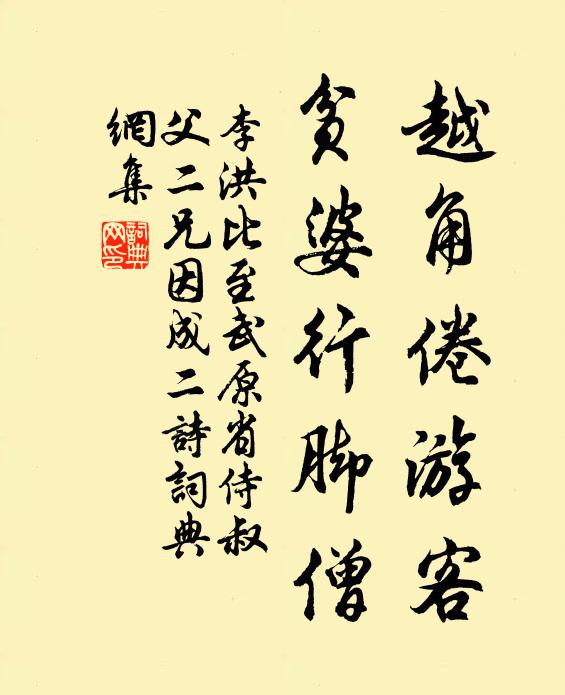 越角倦游客
貧婆行脚僧
李洪比至武原省侍叔
父二兄因成二詩詞典
網集
詞典
网印